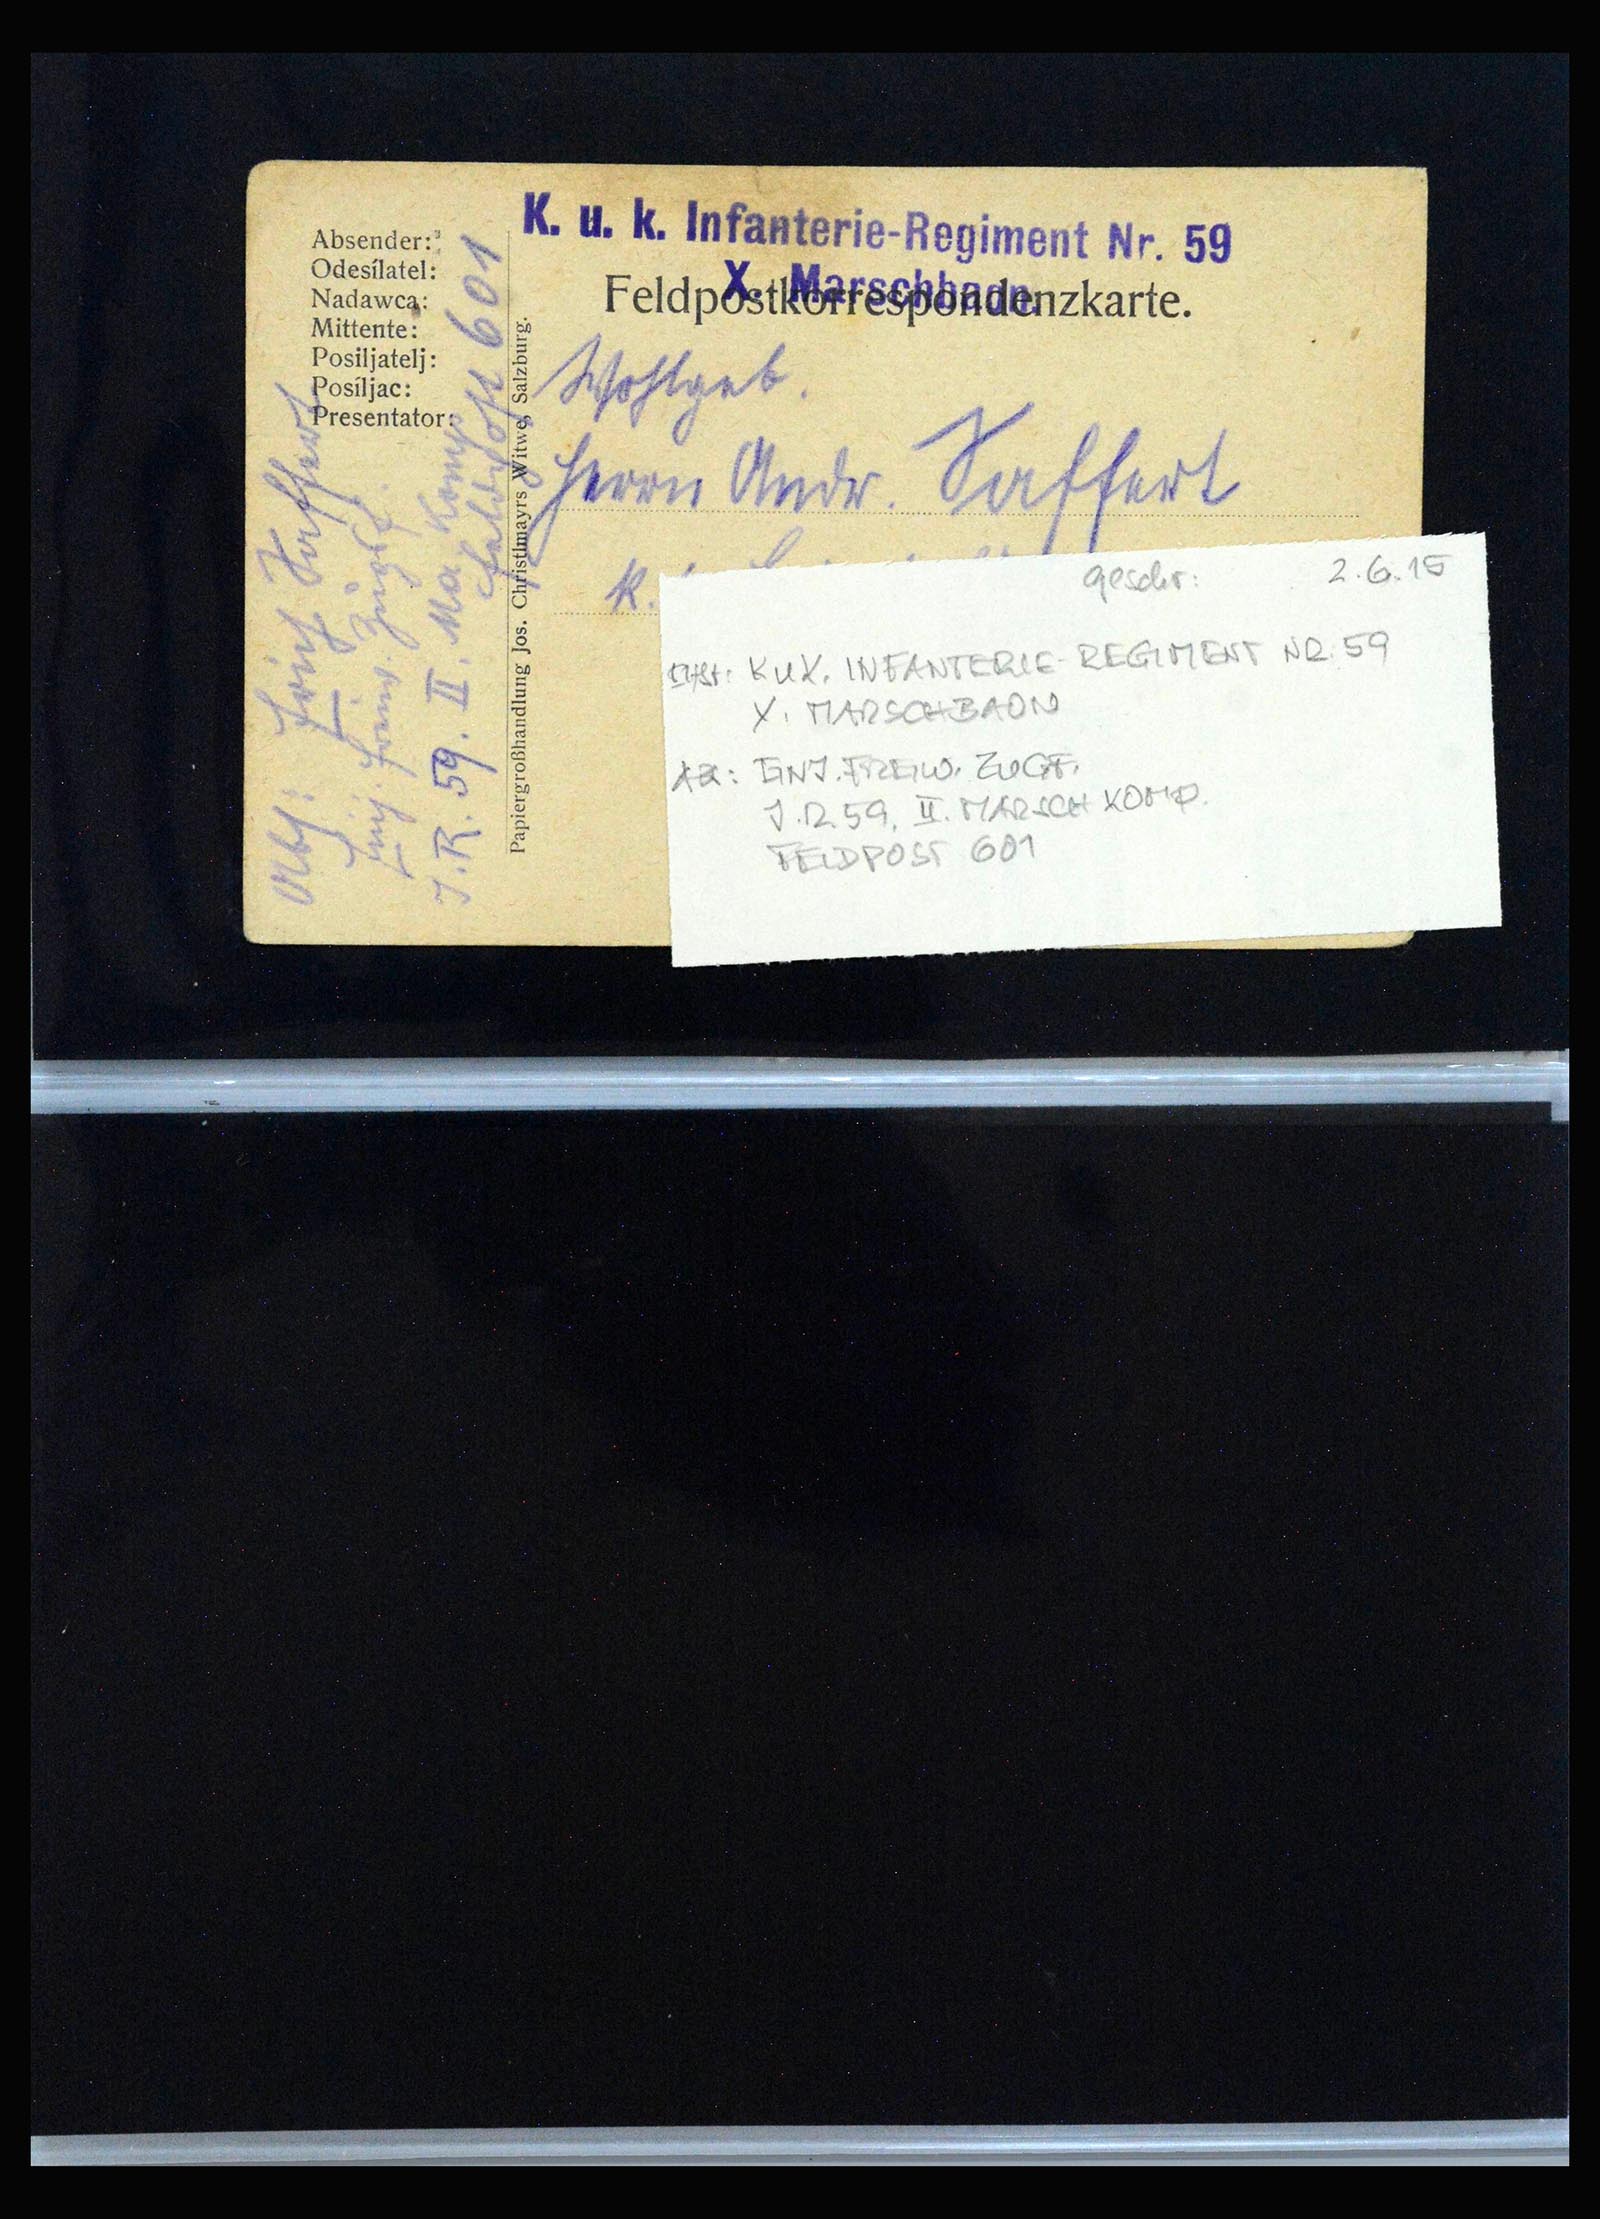 K. u. k. Infanterie-Regiment Nr. 59
X. Marschbaon.
Feldpostkorrespondenzkarte.
Absender:
Odesílatel:
Nadawca:
Mittente:
Posiljatelj:
Posíljac:
Presentator:
Abs:
Einj. Freiw. Zugsf.
I. R. 59. II. Ma. Komp.
Feldpost 601
Papiergroßhandlung Jos. Christlmayrs Witwe, Salzburg.
Wohlgeb.
Herrn Andr. Saffert
k.
geschr: 2.6.15
K.u.K. INFANTERIE-REGIMENT NR. 59
X. MARSCHBAON
AB: EINJ. FREIW. ZUGF.
I.R. 59. II. MARSCH KOMP.
FELDPOST 601